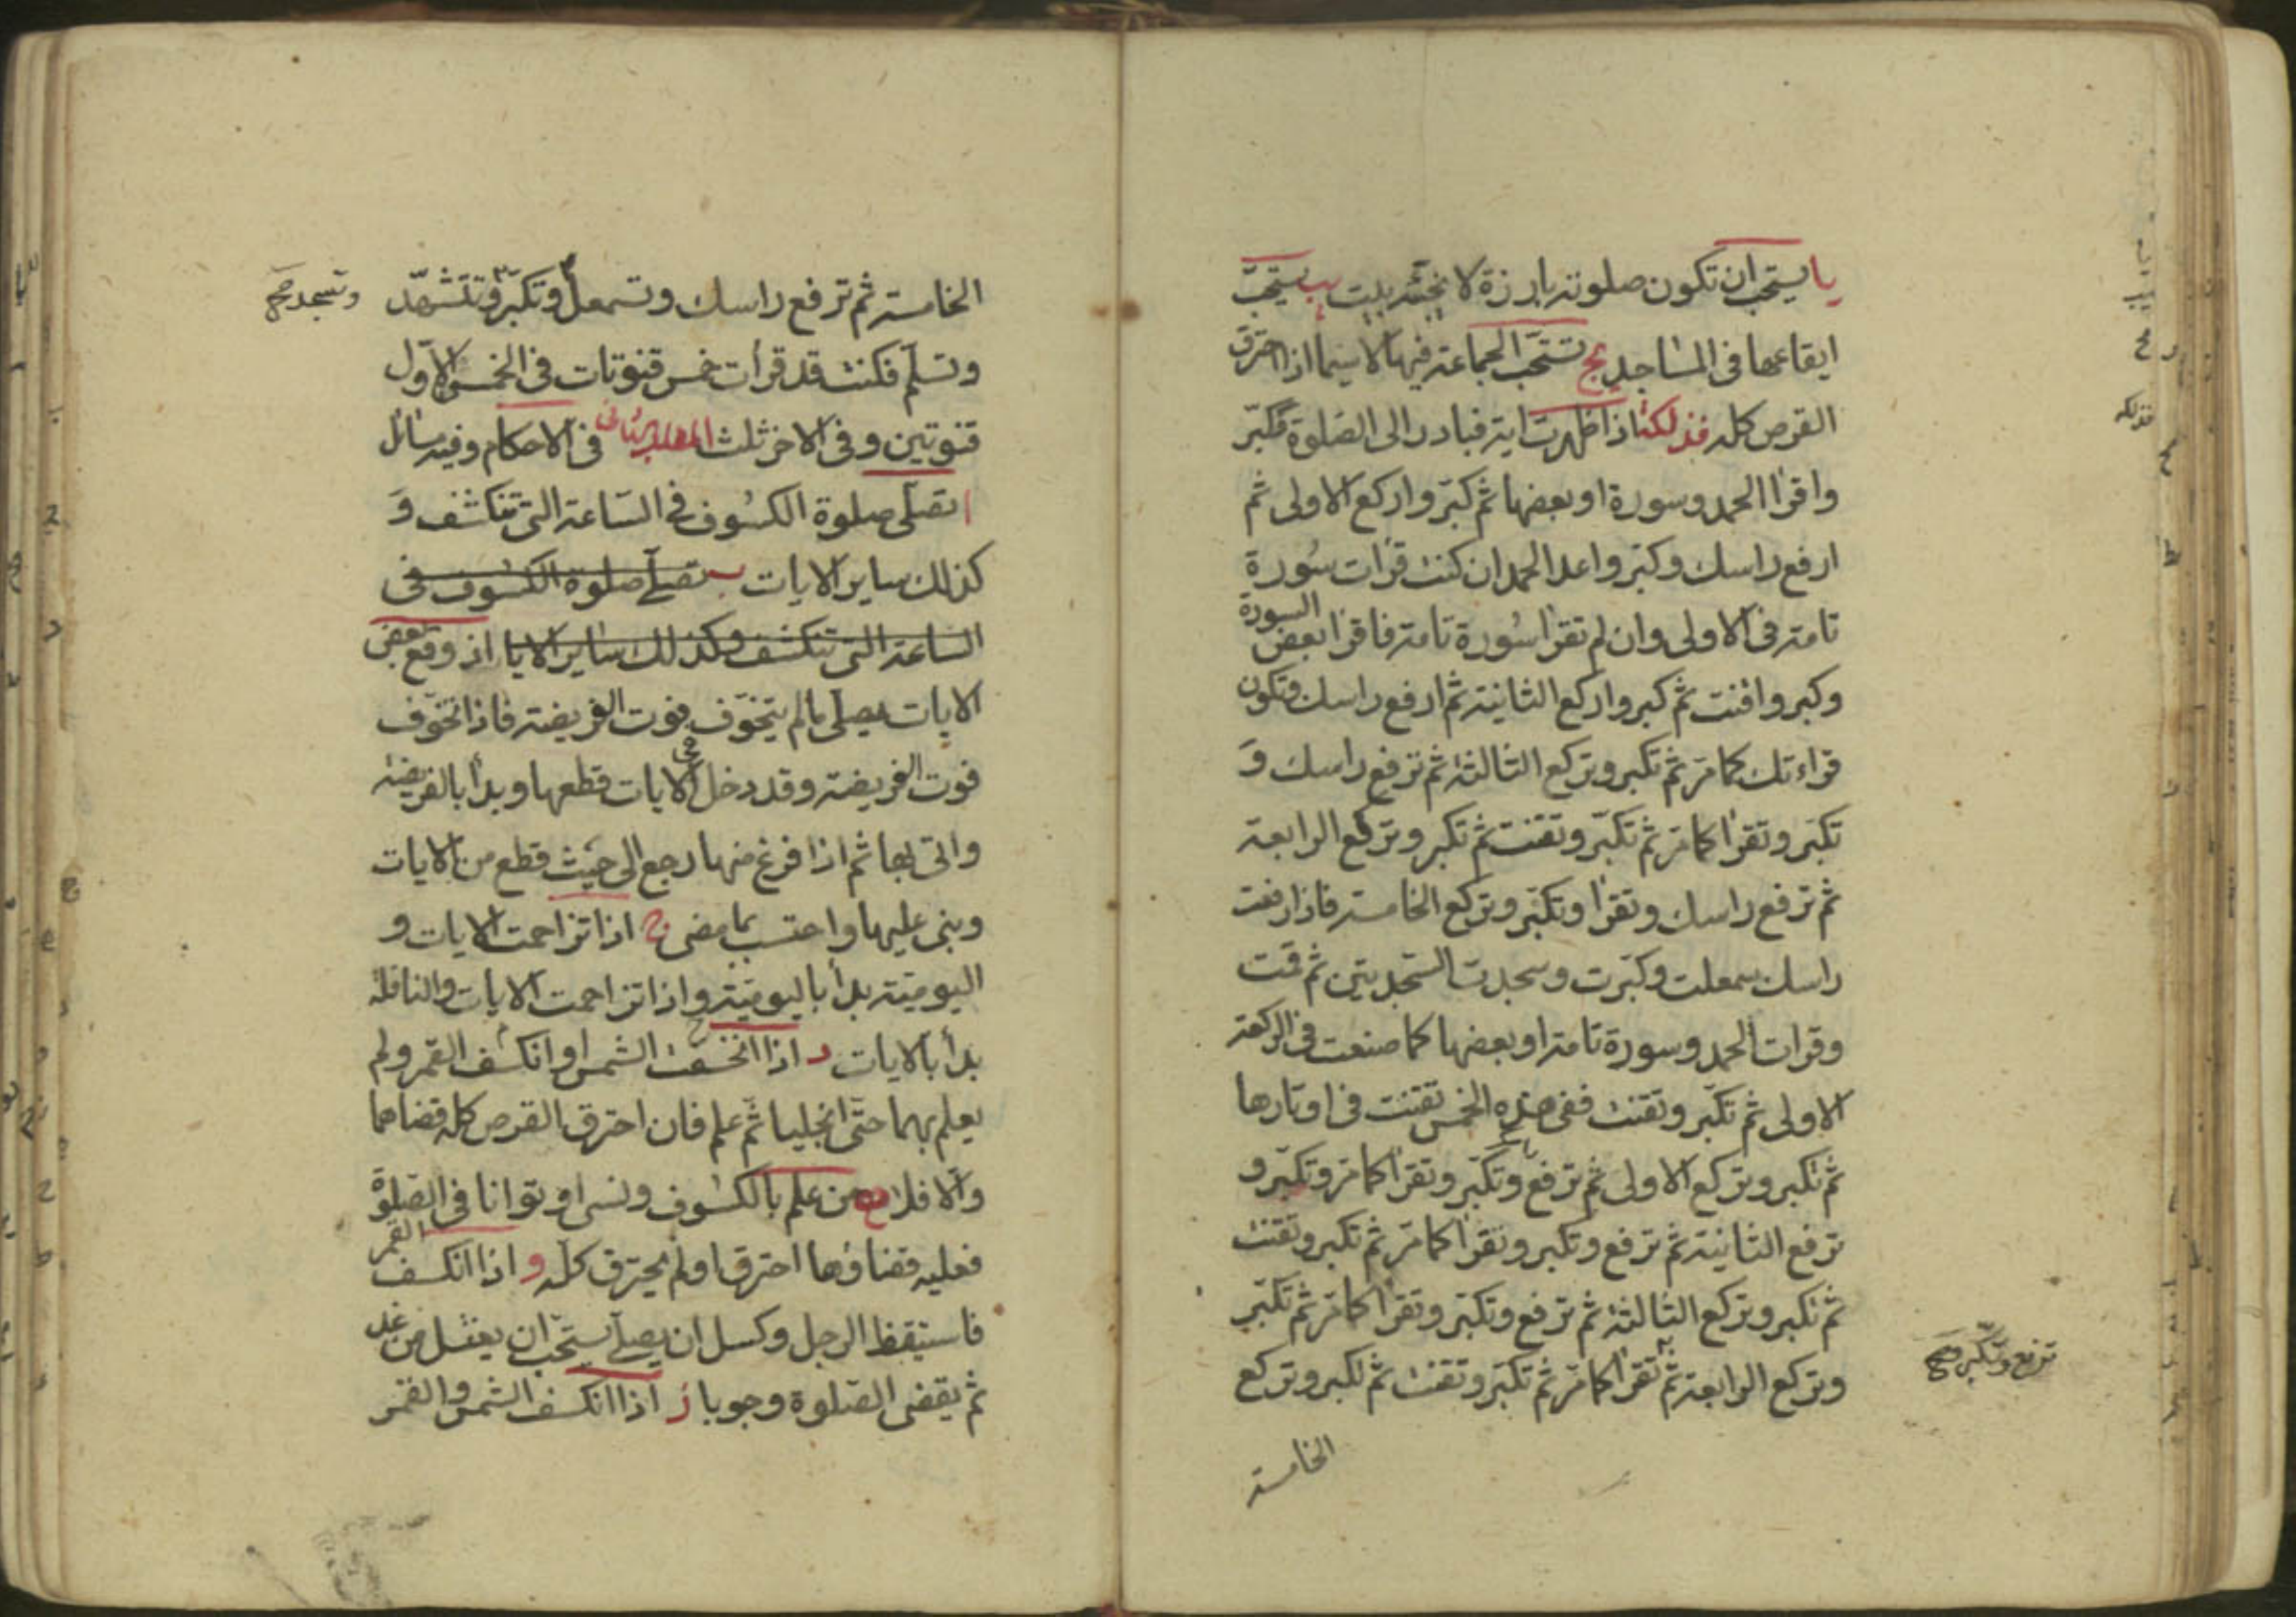 يا يستحب ان تكون صلوته بارزة لا يجنّه بيت يب يستحبّ
ايقاعها في المساجد يج تستحّب الجماعة فيها لا سيما اذا احترق
القرص كله فذلكة اذا ظهرت اية فبادر الى الصّلوة فكبّر
واقرا الحمد وسورة او بعضها ثم كبّر واركع الاولى ثم
ارفع راسك وكبّر واعد الحمد ان كنت قرات سُورة
تامة في الاولى وان لم تقرا سُورة تامة فاقرا بعض السورة
وكبر واقنت ثم كبر واركع الثانية ثم ارفع راسك وتكون
قراءتك كما مرّ ثم تكبر وتركع الثالثة ثم ترفع راسك وَ
تكبّر وتقرا كما مرّ ثم تكبّر وتقنت ثم تكبر وتركع الرابعة
ثم ترفع راسك وتقرا وتكبّر وتركع الخامسة فاذا رفعت
راسك سمعلت وكبّرت وسجدت السّجدتين ثم قمت
وقرات الحمد وسورة تامة او بعضها كما صنعت في الركعة
الاولى ثم تكبّر وتقنت ففي هذه الخمس تقنت في اوتارها
ثم تكبر وتركع الاولى ثم ترفع وتكبّر وتقرا كما مرّ وتكبّر و
ترفع الثانية ثم ترفع وتكبر وتقرا كما مرّ ثم تكبر وتقنت
ثم تكبر وتركع الثالثة ثم ترفع وتكبّر وتقرا كما مرّ ثم تكبّر
وتركع الرابعة ثم تقرا كما مرّ ثم تكبّر وتقنت ثم تكبر وتركع
ترفع وتكبّر صح
الخامسة
الخامسة ثم ترفع راسك وتسمعل وتكبّر وتتشهّد
وتسجد صح
وتسلّم فكنت قد قرات خمس قنوتات في الخمس الاوّل
قنوتين وفي الاخر ثلث المطلب الثاني في الاحكام وفيه مسائل
ا تصلّى صلوة الكسُوف في السّاعة التي تنكشف وَ
كذلك ساير الايات ب تصلّى صلوة الكسُوف في
الساعة التي تنكشف وكذلك ساير الايا اذ وقع بعض
الايات يصلّى ما لم يتخوّف فوت الفريضة فاذا تخوّف
فوت الفريضة وقد دخل في الايات قطعها وبدا بالفريضة
واتى بها ثم اذا فرغ منها رجع الى حيث قطع من الايات
وبنى عليها واحتسب بما مضى ج اذا تزاحمت الايات و
اليوميّة بدأ باليوميّة واذا تزاحمت الايات والنافلة
بدأ بالايات د اذا انخسفت الشمس او انكسف القمر ولم
يعلم بهما حتّى انجليا ثّم علم فان احترق القرص كله قضاهما
والّا فلا ه من علم بالكسُوف ونسى او توانا في الصّلوة
فعليه قضاؤها احترقا ولم يحترق كلّه و اذا انكسف القمر
فاستيقظ الرجل وكسل ان يصلّي يستحّب ان يغتسل من غد
ثم يقضى الصّلوة وجوبا ز اذا انكسف الشمس والقمر